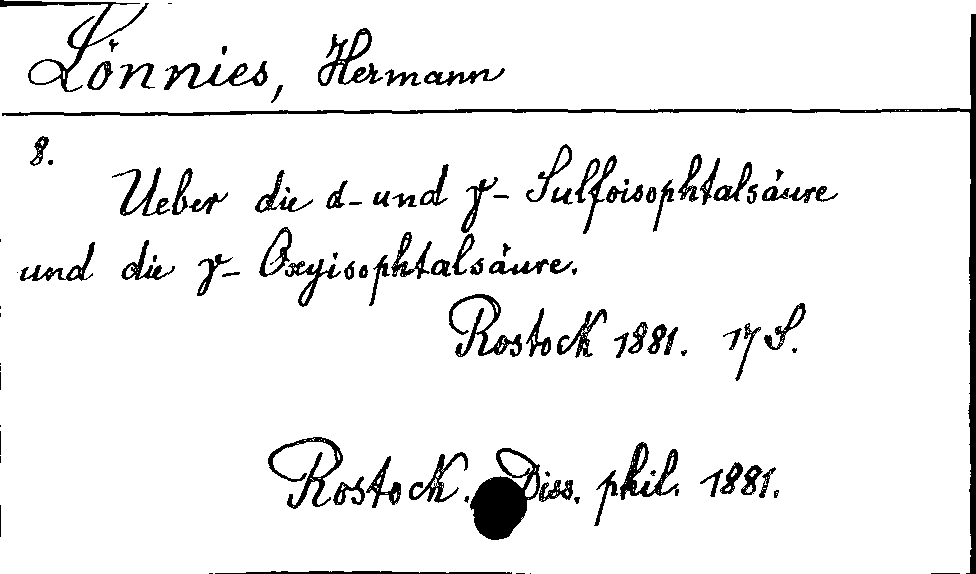 Lönnies, Hermann
8.
Ueber die d- und γ- Sulfoisophtalsäure
und die γ- Oxyisophtalsäure.
Rostock 1881. 17 S.
Rostock., Diss. phil. 1881.